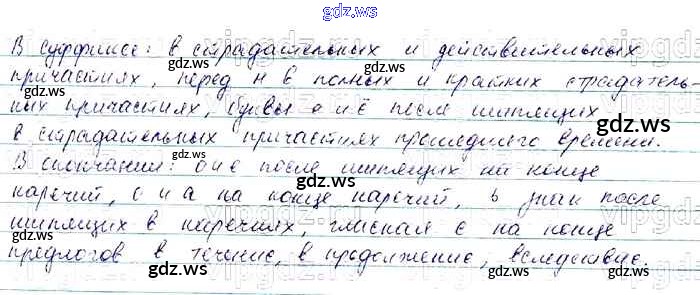 gdz.ws
В суффиксе: в страдательных и действительных
причастиях, перед н в полных и кратких страдатель-
ных причастиях, буквы о и ё после шипящих
в страдательных причастиях прошедшего времени.
В окончании: о и е после шипящих на конце
наречий, о и а на конце наречий, ь знак после
шипящих в наречиях, гласная е на конце
предлогов в течение, в продолжение, вследствие.
gdz.ws